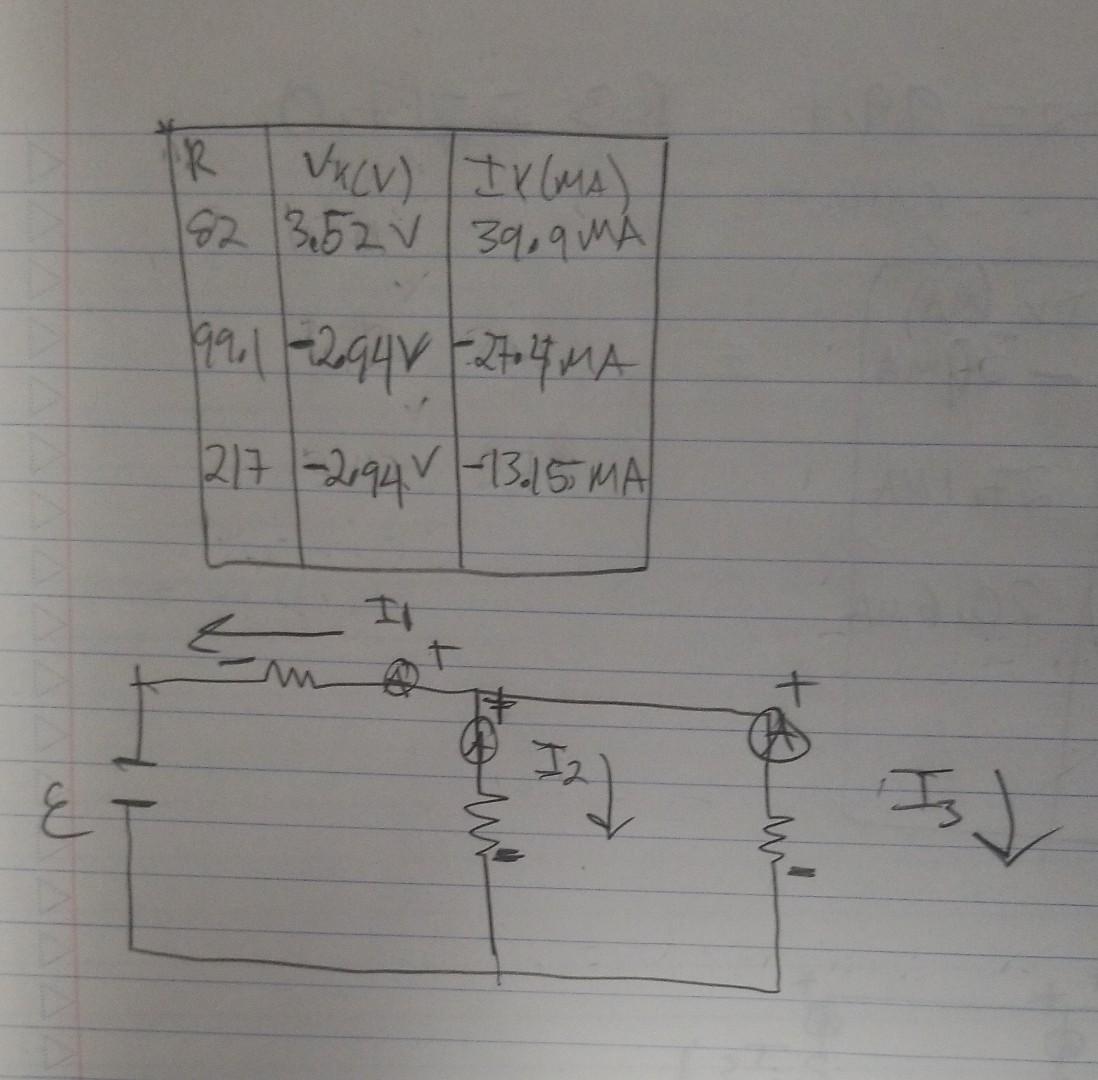 R Vx(V) IX(MA)
82 3.52V 39.9MA
99.1 -2.94V -27.4MA
217 -2.94V -13.15MA
I1
- +
+ +
A
A A
I2
I3
ε
- -